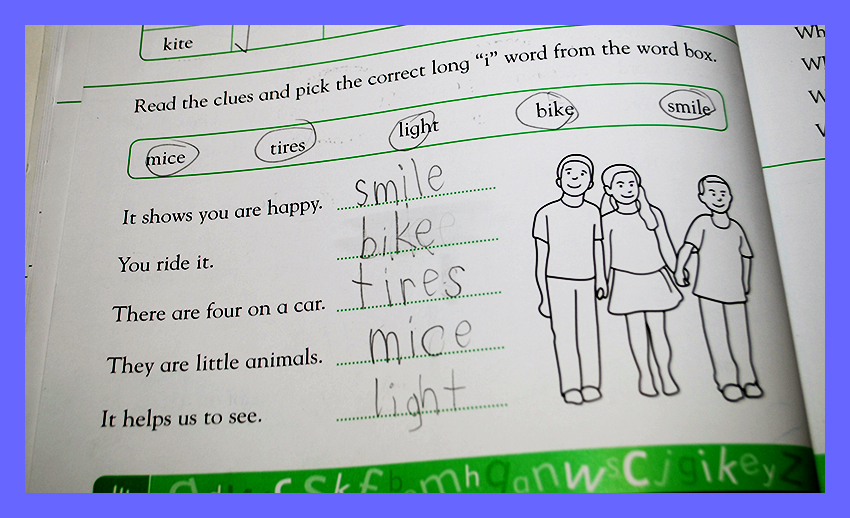 kite
Read the clues and pick the correct long “i” word from the word box.
mice tires light bike smile
It shows you are happy. smile
You ride it. bike
There are four on a car. tires
They are little animals. mice
It helps us to see. light